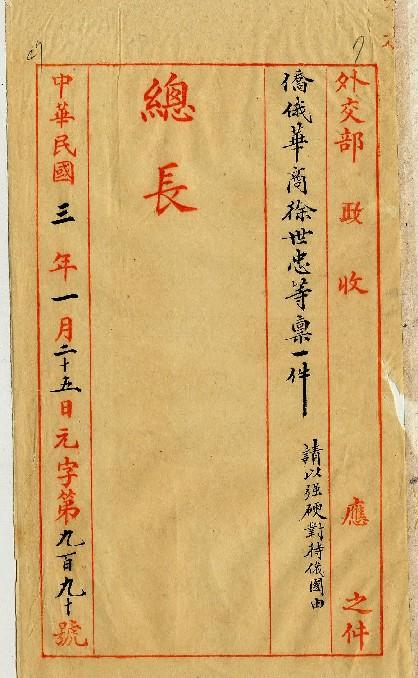 外交部政收應之件
僑俄華商徐世忠等稟一件
請以强硬對待俄國由
總長
中華民國三年一月二十五日元字第九百九十號